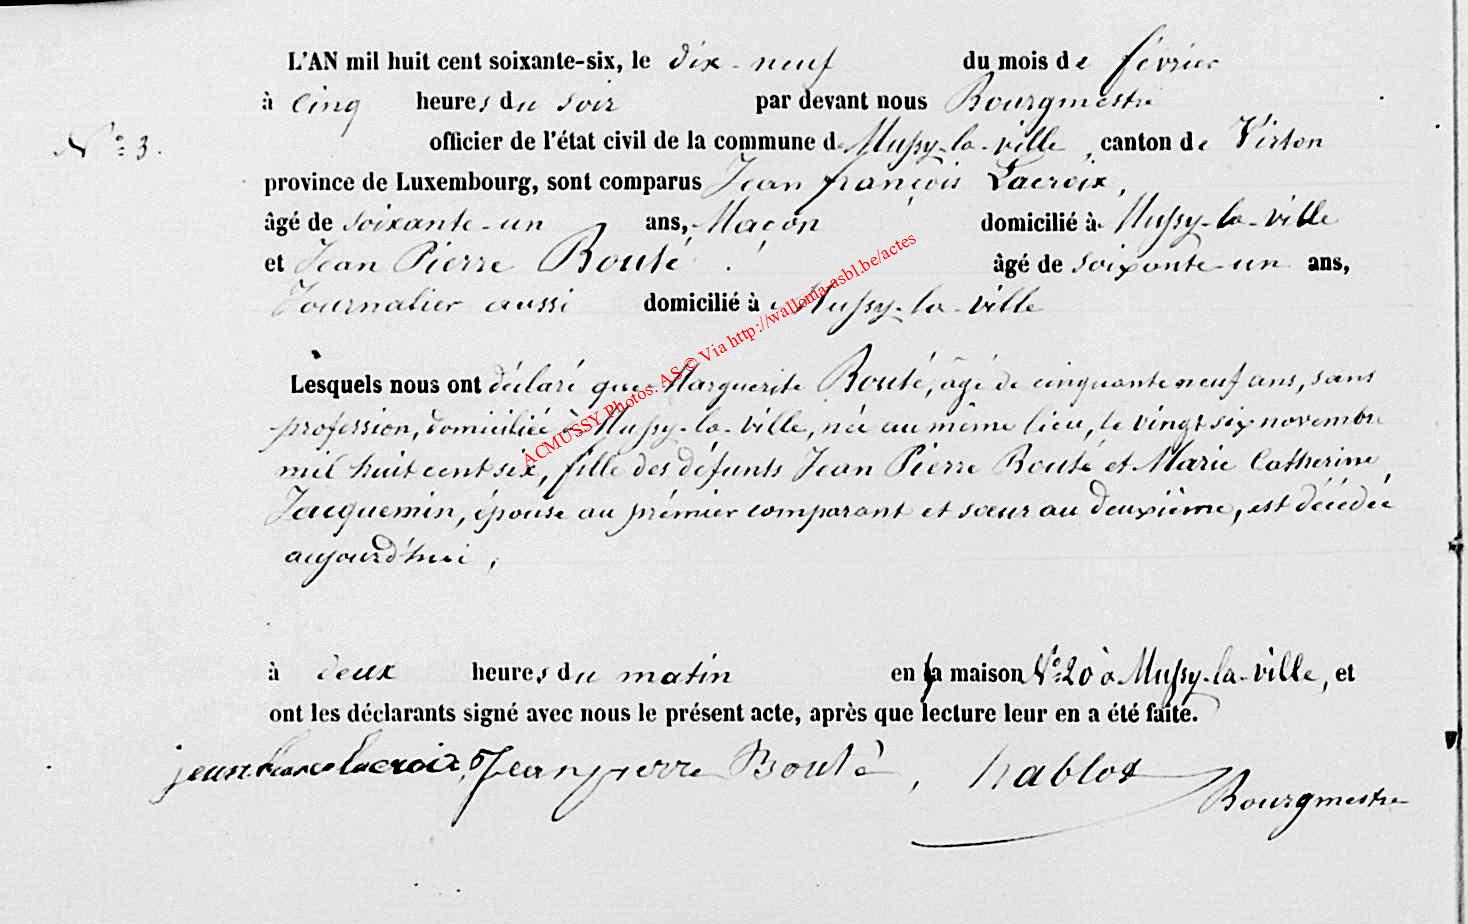 L'AN mil huit cent soixante-six, le dix-neuf du mois de février
à cinq heures du soir par devant nous Bourgmestre
N° 3. officier de l'état civil de la commune de Mussy-la-ville, canton de Virton
province de Luxembourg, sont comparus Jean françois Lacroix,
âgé de soixante-un ans, Maçon domicilié à Mussy-la-ville
et Jean Pierre Bouté âgé de soixante-un ans,
Journalier aussi domicilié à Mussy-la-ville
ACMUSSY Photos. AS © Via http://wallonia-asbl.be/actes
Lesquels nous ont déclaré que Marguerite Bouté, âgé de cinquante neuf ans, sans
profession, domiciliée à Mussy-la-ville, née au même lieu, le vingt six novembre
mil huit cent six, fille des défunts Jean Pierre Bouté et Marie Catherine
Jacquemin, épouse au prémier comparant et sœur au deuxième, est décédée
aujourd'hui,
à deux heures du matin en la maison N° 20 à Mussy-la-ville, et
ont les déclarants signé avec nous le présent acte, après que lecture leur en a été faite.
jean Lacroix, Jean pierre Bouté, hablot
Bourgmestre